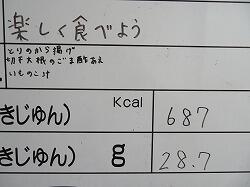 楽しく食べよう
とりのから揚げ
切干大根のごま酢あえ
いものこ汁
きじゅん） Kcal 687
きじゅん） g 28.7